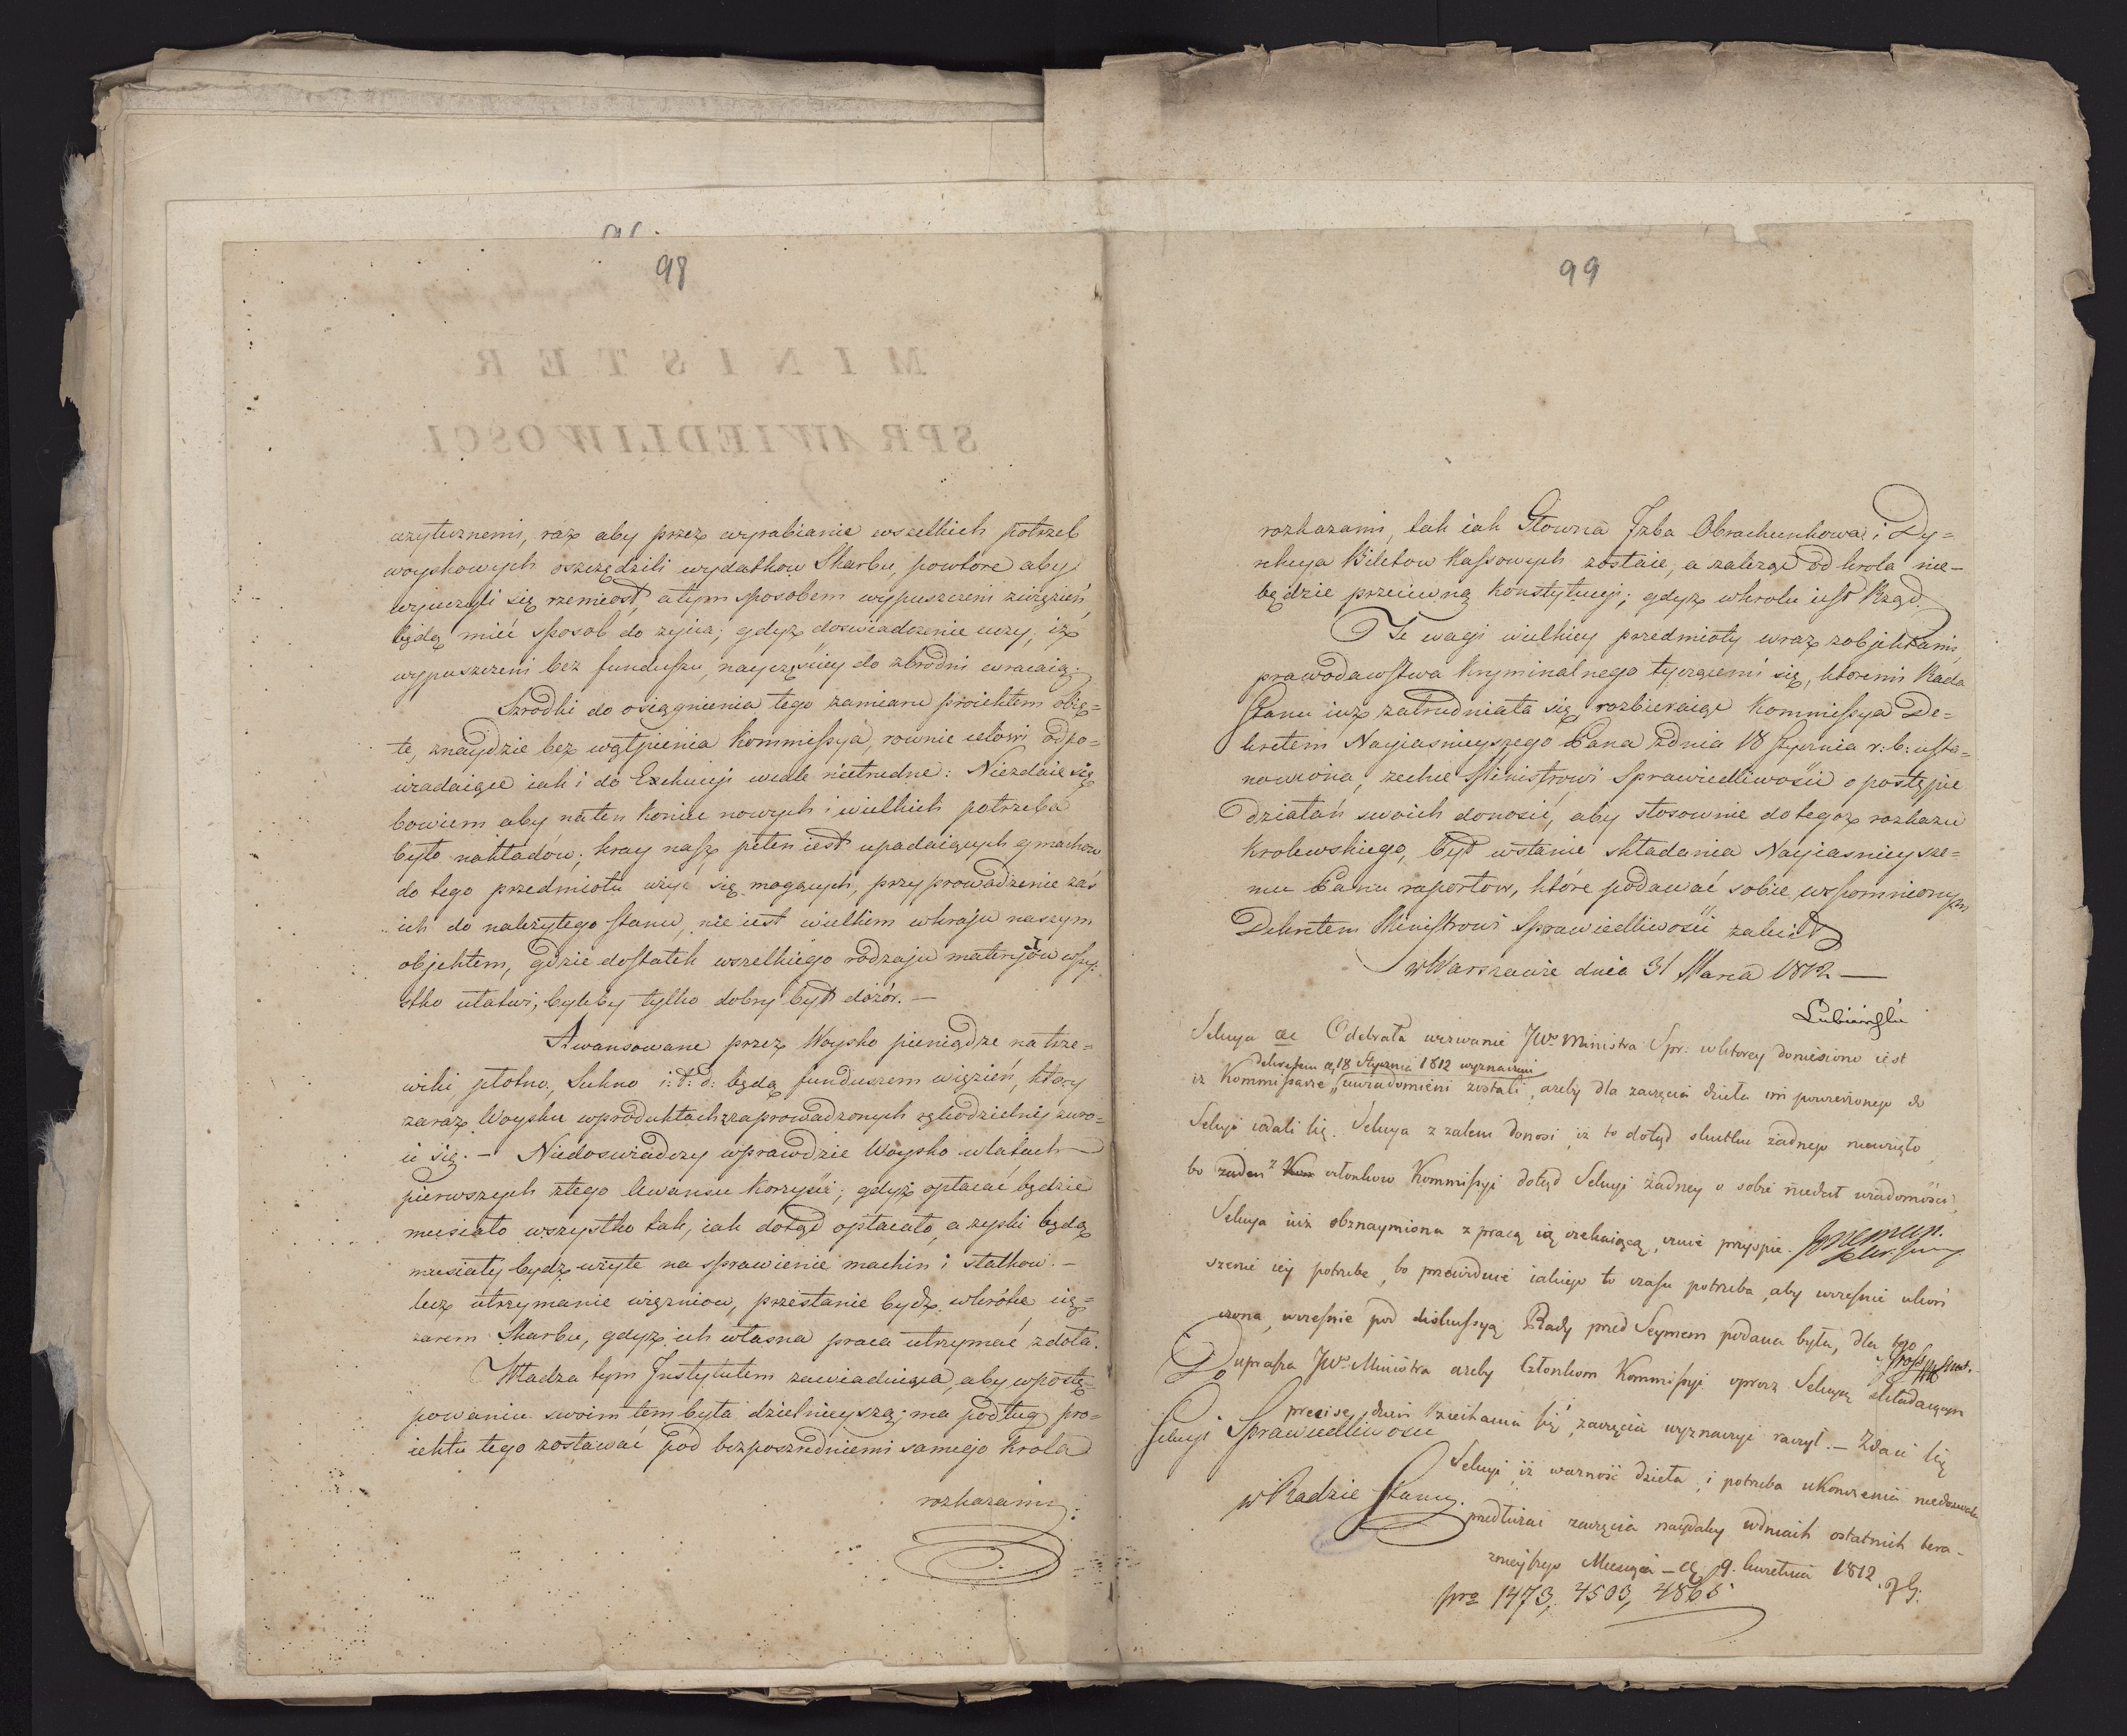 98
użytecznemi, raz aby przez wyrabianie wszelkich potrzeb
woyskowych oszczędzili wydatkow Skarbu, powtore aby
wyuczyli się rzemiosł, a tym sposobem wypuszczeni z więzień,
będą mieć sposob do życia; gdyż doswiadczenie uczy, iż
wypuszczeni bez funduszu, nayczęściey do zbrodni wracaią.
Szrodki do osiągnienia tego zamiaru proiektem obię=
te, znaydzie bez wątpienia Kommissya, rownie celowi odpo=
wiadaiące iak i do Exekucyi wcale nietrudne: Niezdaie się
bowiem aby na ten koniec nowych i wielkich potrzeba
było nakładów; kray nasz pełen iest upadaiących gmachow
do tego przedmiotu użyć się mogących, przyprowadzenie zaś
ich do należytego stanu, nie iest wielkiem w kraju naszym
objektem, gdzie dostatek wszelkiego rodzaju materyałow wszy=
stko ułatwi, byleby tylko dobry był dozór. —
Awansowane przez Woysko pieniądze na trze=
wiki płotno, Sukno i: t: d: będą funduszem więzień, ktory
zaraz Woysku w produktach zaprowadzonych rękodzielniy zwro=
ci się. — Niedoswiadczy wprawdzie Woysko w latach
pierwszych z tego Awansu korzyści; gdyż opłacać będzie
musiało wszystko tak, iak dotąd opłacało, a zyski będą
musiały bydź użyte na sprawienie machin i statkow. —
lecz utrzymanie więzniow, przestanie bydź wkrótce cię=
żarem Skarbu, gdyż ich własna praca utrzymać zdoła.
Władza tym Instytutem zawiaduiąca, aby w postę=
powaniu swoim tem była dzielnieyszą; ma podług pro=
iektu tego zostawać pod bezposzredniemi samego Krola
rozkazami
99
rozkazami, tak iak Głowna Izba Obrachunkowa i Dy=
rekcya Biletow Kassowych zostaie, a zależąc od krola nie=
będzie przeciwną Konstytucyi; gdyż w krolu iest Rząd.
Te wagi wielkiey przedmioty wraz z objektami,
prawodawstwa kryminalnego tyczącemi się, ktoremi Rada
Stanu iuż zatrudniała się, rozbieraiąc Kommissya De=
kretem Nayiasnieyszego Pana z dnia 18 Stycznia r: b: usta=
nowiona, zechce Ministrowi Sprawiedliwości o postępie
działań swoich donosić, aby stosownie do tegoż rozkazu
Krolewskiego, był wstanie składania Nayiasnieysze=
mu Panu raportow, które podawać sobie wspomnionym
Dekretem Ministrowi Sprawiedliwości zalecił
w Warszawie dnia 31 Marca 1812 —
Lubieński
Sekcya Odebrała wezwanie JW. Ministra Spr: w ktorey doniesiono iest
dekretem 18 Stycznia 1812 wyznaczeni
iz Kommissarze uwiadomieni zostali, azeby dla zaczęcia dzieła im powierzonego do
Sekcyi udali się. Sekcya z zalem donosi iż to dotąd skutku żadnego niewzięło
bo żaden z członkow Kommissyi dotąd Sekcyi żadney o sobie niedał wiadomości,
Sekcya iuż obznaymiona z pracą ią czekaiącą, czuie przyspie=
szenie iey potrzebę, bo przewiduie iakiego to czasu potrzeba, aby wcześnie ukoń
czona, wcześnie pod diskussyą Rady przed Seymem podana była, dla tego
uprasza JW. Ministra azeby Członkom Kommissyi oprocz Sekcyą składaiącym
precise dzień ziechania się, zaczęcia wyznaczyć raczył. — Zdaie się
Do
Sekcyi Sprawiedliwości
w Radzie Stanu.
Sekcyi iż ważność dzieła i potrzeba ukończenia niedozwala
przedłużać zaczęcia naydaley w dniach ostatnich tera=
znieyszego Miesiąca — 9. kwietnia 1812.
prz 1473, 4503, 4865